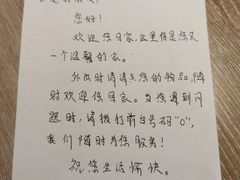 您好！
欢迎您回家,这里便是您又
一个温馨的家。
外出时请清点您的物品,随
时欢迎您回家。当您遇到问
题时,请拨打前台号码"0",
我们随时为您服务!
祝您生活愉快。